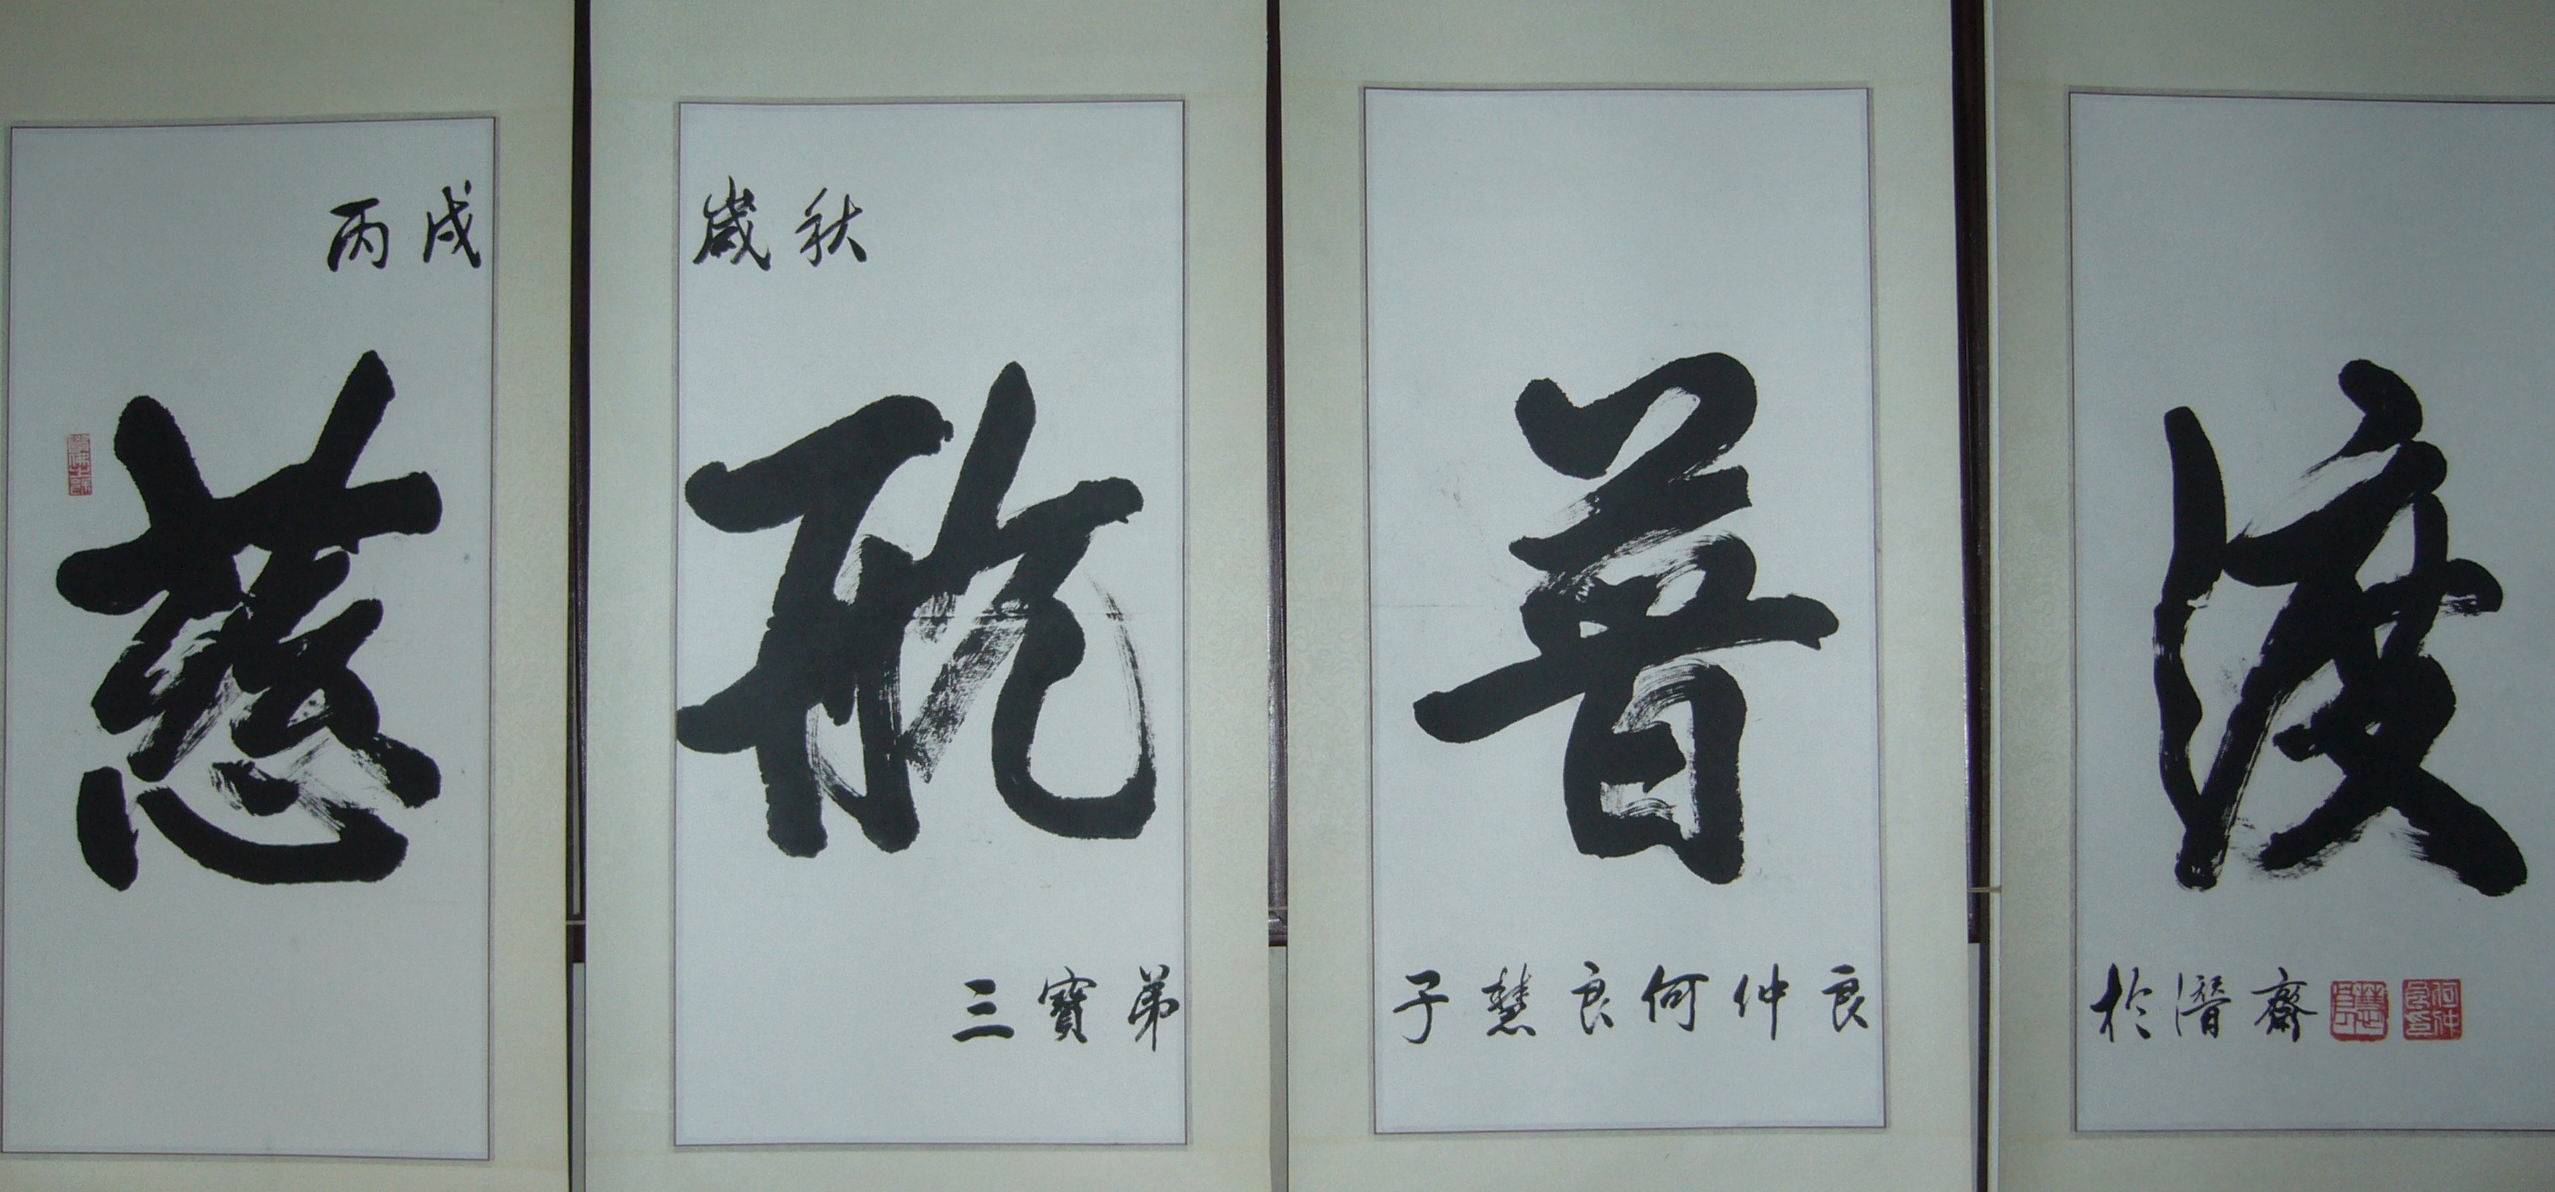 丙戌歲秋
慈航普渡
三寶弟子慧良何仲良於潛齋